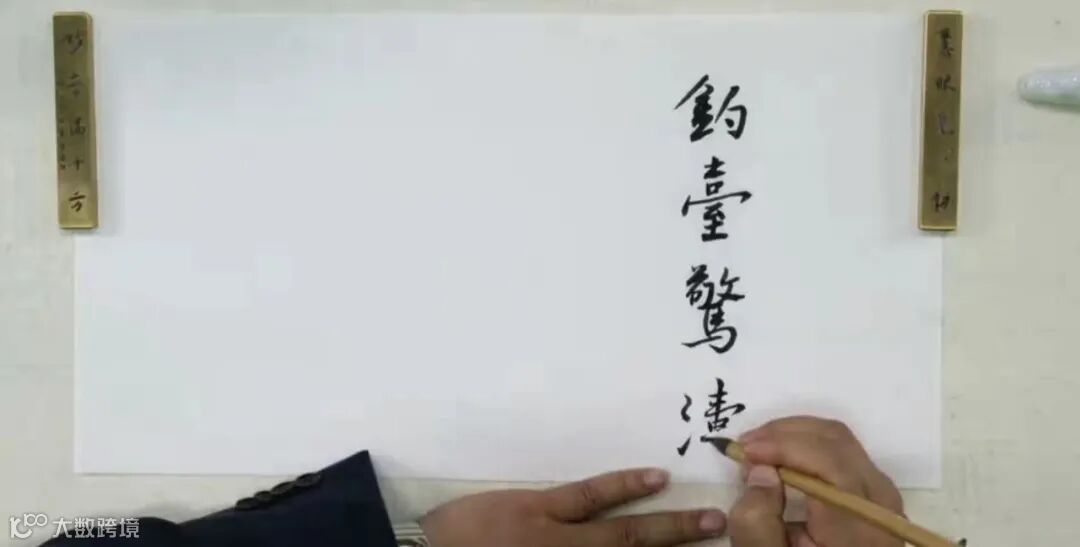 釣臺驚濤
妙音滿十方
慧眼
大数跨境